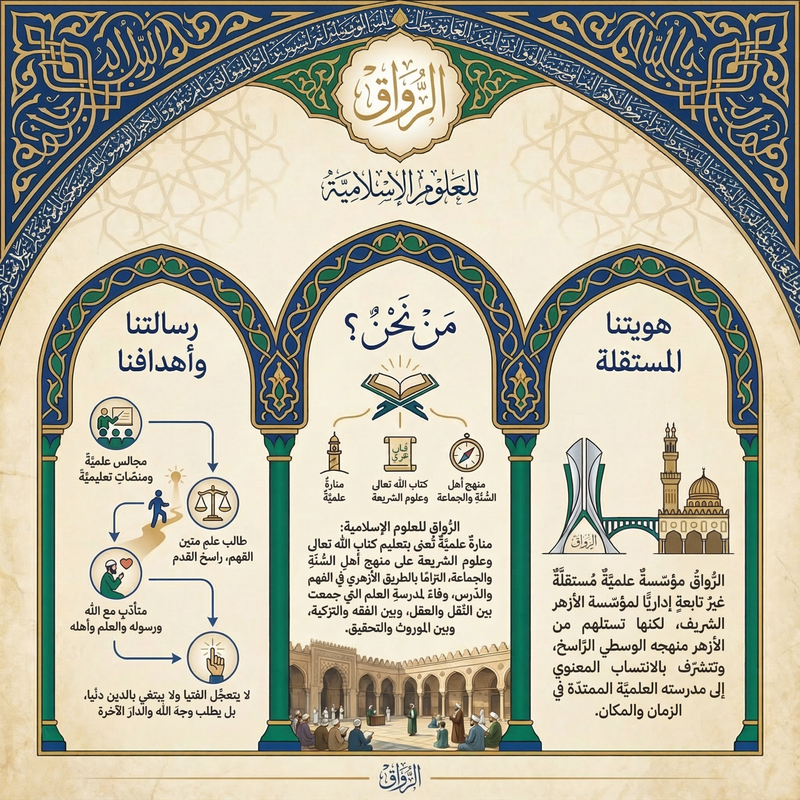 الرُّواق
للعلوم الإسلاميّة
هويتنا
المستقلة
الرُّواق
الرُّواقُ مؤسّسةٌ علميّةٌ مُستقلَّةٌ
غيرُ تابعةٍ إداريًّا لمؤسّسة الأزهر
الشريف، لكنها تستلهم من
الأزهر منهجه الوسطي الرَّاسخ،
وتتشرّف بالانتساب المعنوي
إلى مدرسته العلميَّة الممتدّة في
الزمان والمكان.
مَنْ نَحْنُ؟
منهج أهل
السُّنَّةِ والجماعة
كتاب الله تعالى
وعلوم الشريعة
منارةٌ
علميَّةٌ
الرُّواق للعلوم الإسلامية:
منارةٌ علميَّةٌ تُعنى بتعليم كتاب الله تعالى
وعلوم الشريعة على منهج أهلِ السُّنَّةِ
والجماعة، التزامًا بالطريق الأزهري في الفهم
والدّرس، وفاءً لمدرسةِ العلم التي جمعت
بين النَّقل والعقل، وبين الفقه والتزكية،
وبين الموروث والتحقيق.
رسالتنا
وأهدافنا
مجالس علميَّةٌ
ومنصّاتٍ تعليميَّةٌ
طالب علمٍ متين
القهم، راسخ القدم
متأدّبٍ مع الله
ورسوله والعلم وأهله
لا يتعجَّل الفتيا ولا يبتغي بالدين دنْيا،
بل يطلب وجهَ الله والدارَ الآخرة
الرُّواق